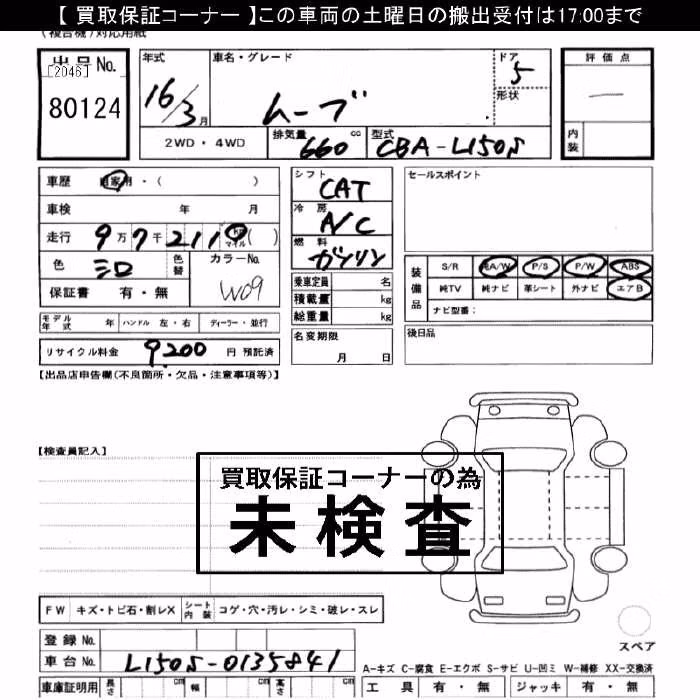 【 買取保証コーナー 】この車両の土曜日の搬出受付は17:00まで
(複合機)対応用紙
出品No.
[2046]
80124
年式
16/3月
車名・グレード
ムーブ
ドア
5
形状
評価点
―
内装
2WD・4WD
排気量 660 cc
型式 CBA-L150S
車歴 自家用・( )
車検 年 月
走行 9万7千2110 マイル ( )
色 シロ 色替
カラーNo. W09
保証書 有・無
シフト CAT
冷房 A/C
燃料 ガソリン
乗車定員 名
積載量 kg
総重量 kg
セールスポイント
装備品
S/R 純A/W P/S P/W ABS
純TV 純ナビ 革シート 外ナビ エアB
ナビ型番:
モデル年式 年 ハンドル 左・右 ディーラー・並行
名変期限
月 日
後日品
リサイクル料金 9,200 円 預託済
【出品店申告欄(不良箇所・欠品・注意事項等)】
【検査員記入】
買取保証コーナーの為
未検査
FW キズ・トビ石・割レX シート内装 コゲ・穴・汚レ・シミ・破レ・スレ
スペア
登録No.
車台No. L150S-0135841
A-キズ C-腐食 E-エクボ S-サビ U-凹ミ W-補修 XX-交換済
車庫証明用 長さ cm 幅 cm 高さ cm
工具 有・無 ジャッキ 有・無